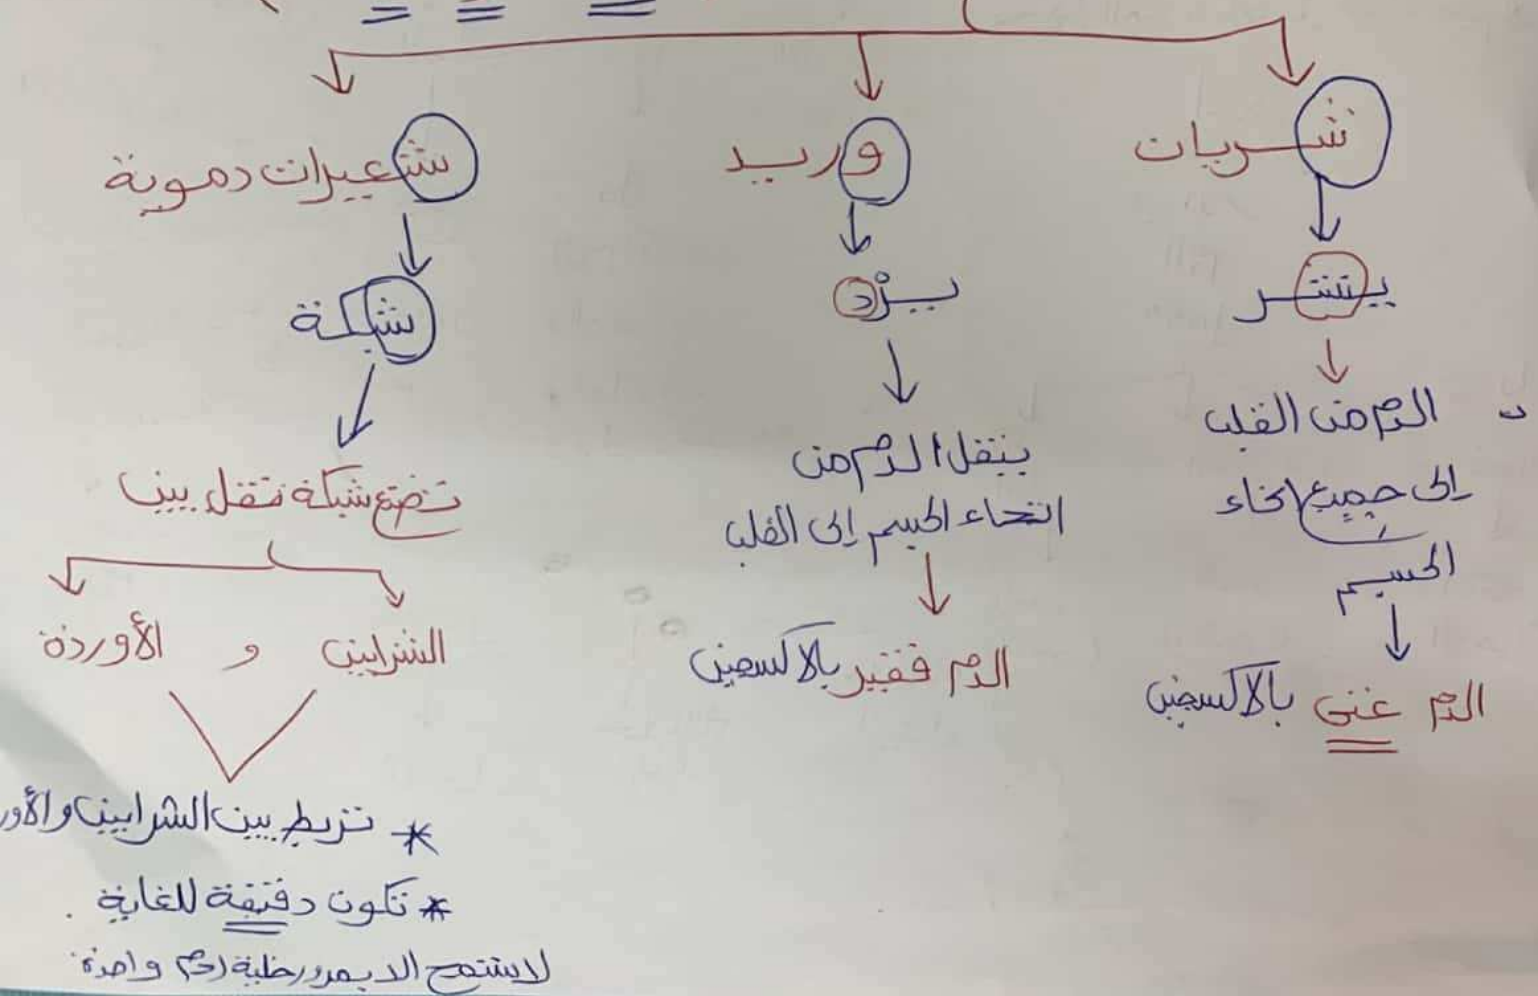 شريان
ينشر
الدم من القلب
إلى جميع انحاء
الجسم
الدم غني بالاكسجين
وريد
يرد
ينقل الدم من
انحاء الجسم إلى القلب
الدم فقير بالاكسجين
شعيرات دموية
شبكة
تصنع شبكة تنقل بين
الشرايين و الأوردة
* تربط بين الشرايين والأور
* تكون دقيقة للغاية.
لا تسمح الا بمرور خلية دم واحدة.